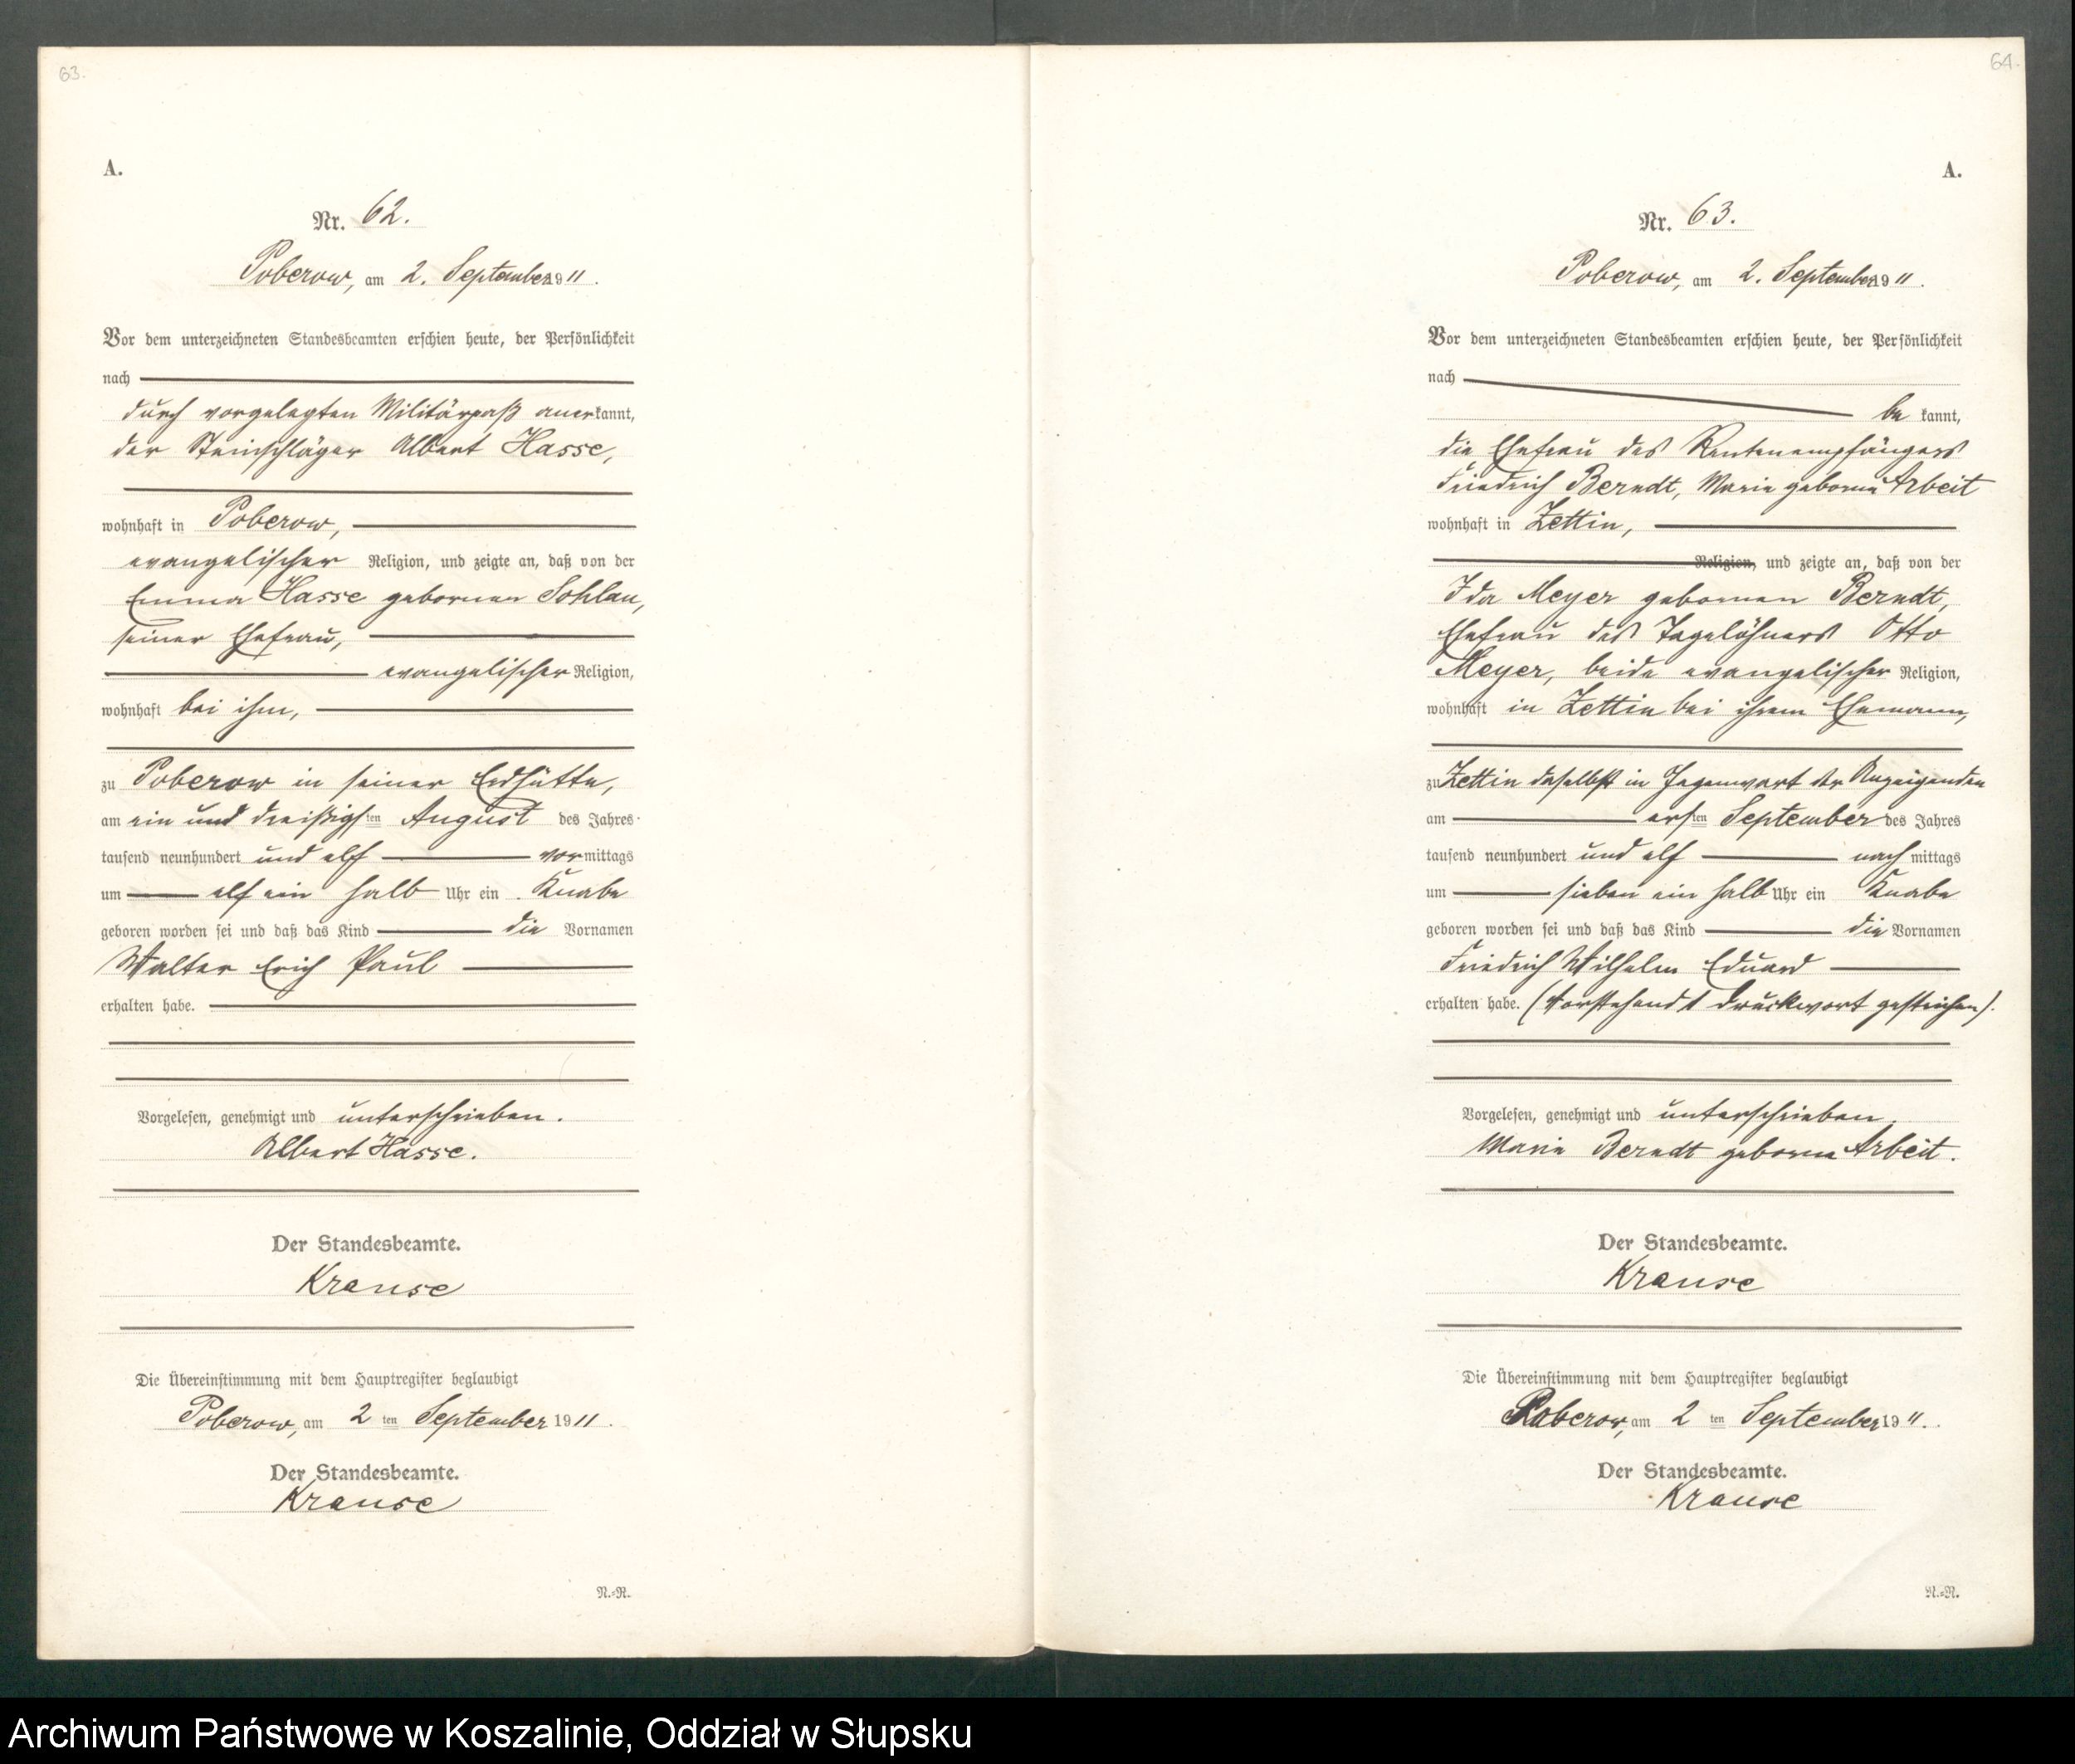 63.
A.
Nr. 62.
Poberow, am 2. September 1911.
Vor dem unterzeichneten Standesbeamten erschien heute, der Persönlichkeit
nach
durch vorgelegten Militärpaß anerkannt,
der Steinschläger Albert Hasse,
wohnhaft in Poberow,
evangelischer Religion, und zeigte an, daß von der
Emma Hasse geborenen Sohlau,
seiner Ehefrau,
evangelischer Religion,
wohnhaft bei ihm,
zu Poberow in seiner Erdhütte,
am ein und dreißigsten August des Jahres
tausend neunhundert und elf vormittags
um elf ein halb Uhr ein Knabe
geboren worden sei und daß das Kind die Vornamen
Walter Erich Paul
erhalten habe.
Vorgelesen, genehmigt und unterschrieben.
Albert Hasse.
Der Standesbeamte.
Krause
Die Übereinstimmung mit dem Hauptregister beglaubigt
Poberow, am 2ten September 1911.
Der Standesbeamte.
Krause
N.-N.
64.
A.
Nr. 63.
Poberow, am 2. September 1911.
Vor dem unterzeichneten Standesbeamten erschien heute, der Persönlichkeit
nach
bekannt,
die Ehefrau des Rentenempfängers
Friedrich Berndt, Marie geborene Arbeit
wohnhaft in Zettin,
Religion, und zeigte an, daß von der
Ida Meyer geborenen Berndt,
Ehefrau des Tagelöhners Otto
Meyer, beide evangelischer Religion,
wohnhaft in Zettin bei ihrem Ehemann,
zu Zettin daselbst in Gegenwart der Anzeigenden
am ersten September des Jahres
tausend neunhundert und elf nachmittags
um sieben ein halb Uhr ein Knabe
geboren worden sei und daß das Kind die Vornamen
Friedrich Wilhelm Eduard
erhalten habe. (Vorstehend 1 Druckwort gestrichen).
Vorgelesen, genehmigt und unterschrieben.
Marie Berndt geborene Arbeit.
Der Standesbeamte.
Krause
Die Übereinstimmung mit dem Hauptregister beglaubigt
Poberow, am 2ten September 1911.
Der Standesbeamte.
Krause
N.-N.
Archiwum Państwowe w Koszalinie, Oddział w Słupsku